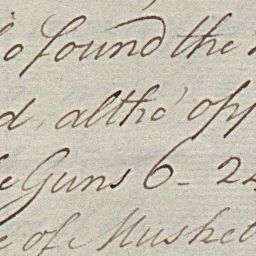 so found the
d, altho' opp
e Guns 6 - 24
e of Musket